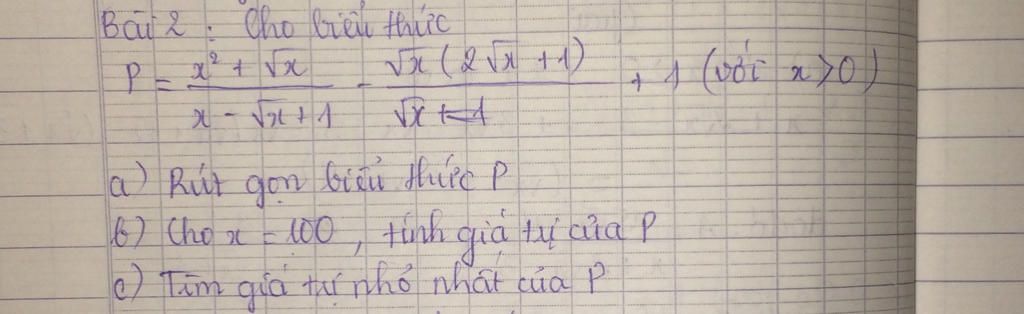 Bài 2 : Cho biểu thức
P = \frac{x² + √x}{x - √x + 1} - \frac{√x (2√x + 1)}{√x} + 1 (với x > 0)
a) Rút gọn biểu thức P
b) Cho x = 100, tính giá trị của P
c) Tìm giá trị nhỏ nhất của P